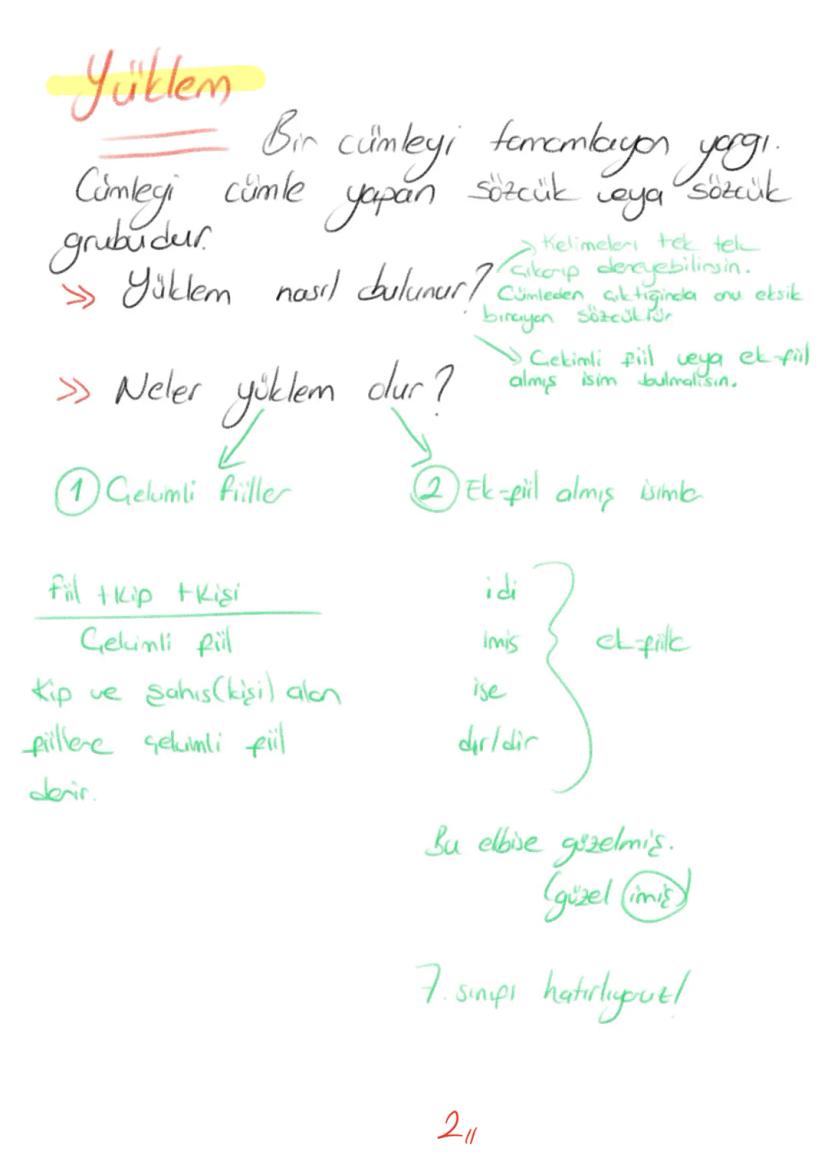 Yüklem
Bir cümleyi tamamlayan yargı.
Cümleyi cümle yapan sözcük veya sözcük
grubudur.
» Yüklem nasıl bulunur?
→ Kelimeleri tek tek
çıkarıp deneyebilirsin.
Cümleden çıktığında onu eksik
bırayan sözcüktür
→ Çekimli fiil veya ek-fiil
almış isim bulmalısın.
» Neler yüklem olur?
1 Çekimli fiiller
2 Ek-fiil almış isimle
fiil +kip +kişi
Çekimli fiil
Kip ve şahıs(kişi) alan
fiillere çekimli fiil
denir.
idi
imiş
ise
dır/dir
ek-fiile
Bu elbise güzelmiş.
(güzel imiş)
7. sınıfı hatırlıyoruz!
2